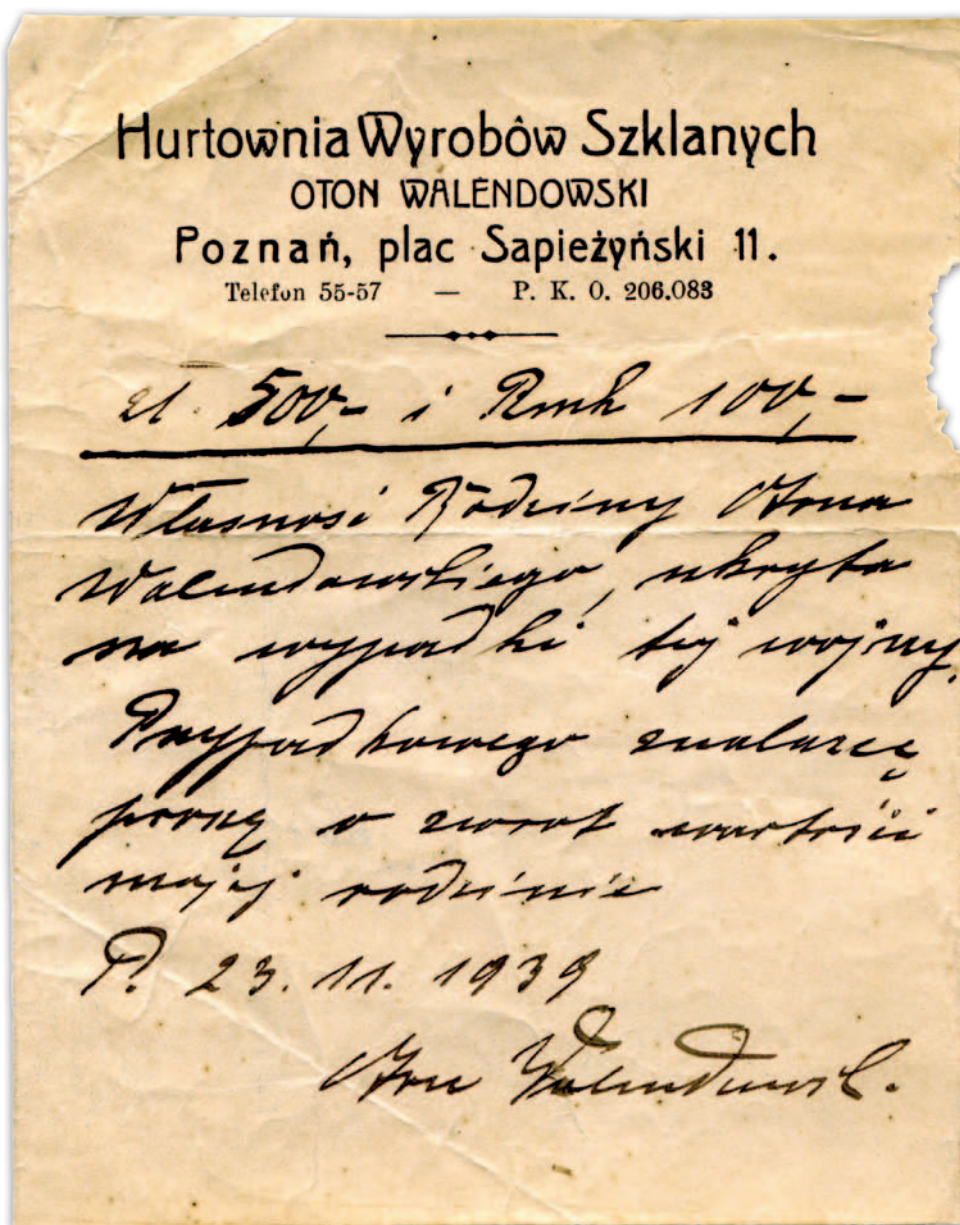 Hurtownia Wyrobów Szklanych
OTON WALENDOWSKI
Poznań, plac Sapieżyński 11.
Telefon 55-57 — P. K. O. 206.083
zł. 500,- i Rmk 100,-
Własność Rodziny Otona
Walendowskiego, ukryta
na wypadki tej wojny.
Przypadkowego znalazcę
proszę o zwrot wartości
mojej rodzinie
P. 23. 11. 1939
Oton Walendowsk.